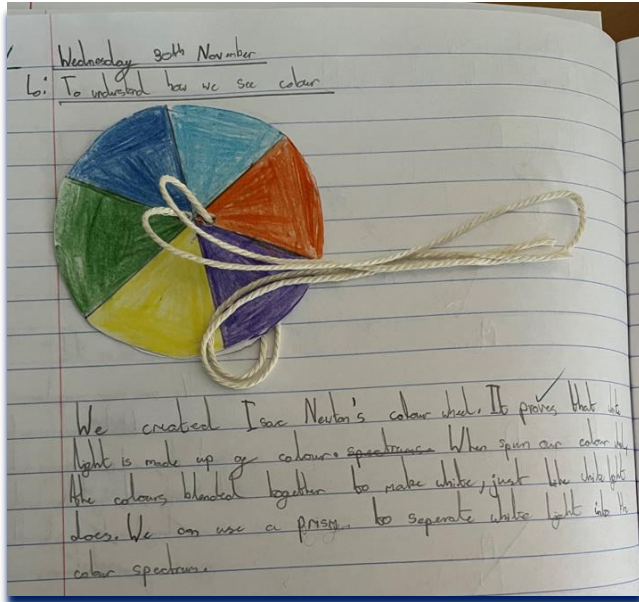 Wednesday 30th November
Lo: To understand how we see colour
We created Isac Newton's colour wheel. It proves that white
light is made up of colour. spectrum. When spun our colour
the colours blended together to make white, just like white light
does. We can use a prism to seperate white light into the
colour spectrum.